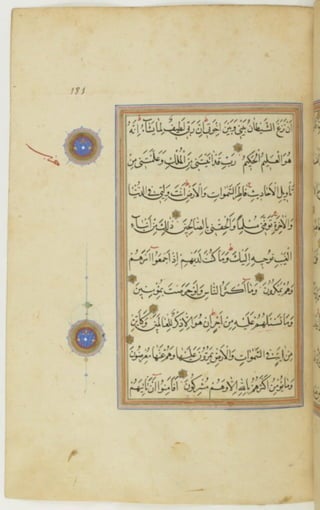 181
اَن نَزَغَ الشَّيْطَانُ بَيْنِي وَبَيْنَ اِخْوَتِي اِنَّ رَبِّي لَطِيفٌ لِمَا يَشَاءُ اِنَّهُ
هُوَ الْعَلِيمُ الْحَكِيمُ رَبِّ قَدْ اٰتَيْتَنِي مِنَ الْمُلْكِ وَعَلَّمْتَنِي مِنْ
تَأْوِيلِ الْاَحَادِيثِ فَاطِرَ السَّمٰوَاتِ وَالْاَرْضِ اَنْتَ وَلِيِّي فِي الدُّنْيَا
وَالْاٰخِرَةِ تَوَفَّنِي مُسْلِمًا وَاَلْحِقْنِي بِالصَّالِحِينَ ذٰلِكَ مِنْ اَنْبَاءِ
الْغَيْبِ نُوحِيهِ اِلَيْكَ وَمَا كُنْتَ لَدَيْهِمْ اِذْ اَجْمَعُوا اَمْرَهُمْ
وَهُمْ يَمْكُرُونَ وَمَا اَكْثَرُ النَّاسِ وَلَوْ حَرَصْتَ بِمُؤْمِنِينَ
وَمَا تَسْئَلُهُمْ عَلَيْهِ مِنْ اَجْرٍ اِنْ هُوَ اِلَّا ذِكْرٌ لِلْعَالَمِينَ وَكَاَيِّنْ
مِنْ اٰيَةٍ فِي السَّمٰوَاتِ وَالْاَرْضِ يَمُرُّونَ عَلَيْهَا وَهُمْ عَنْهَا مُعْرِضُونَ
وَمَا يُؤْمِنُ اَكْثَرُهُمْ بِاللّٰهِ اِلَّا وَهُمْ مُشْرِكُونَ اَفَاَمِنُوا اَنْ تَأْتِيَهُمْ